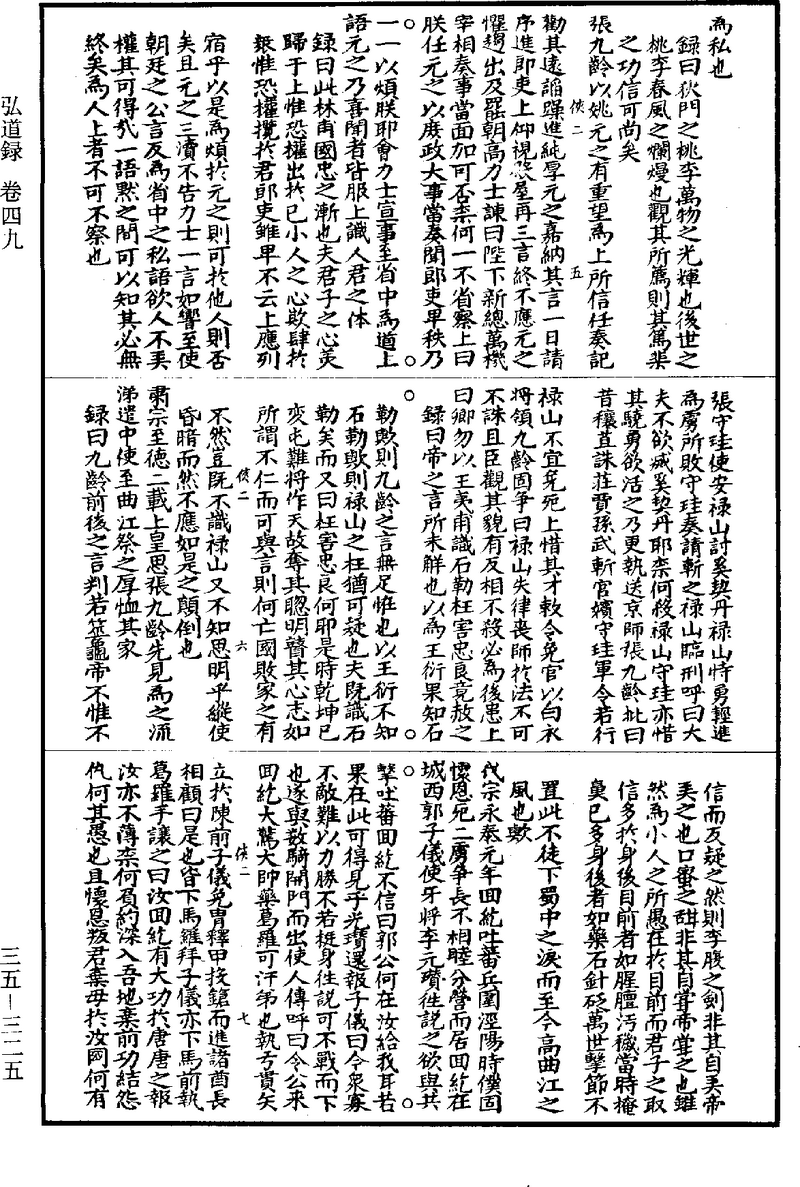 為私也
錄曰狄門之桃李萬物之光輝也後世之
桃李春風之爛熳也觀其所薦則其篤棐
之功信可尚矣
張九齡以姚元之有重望為上所信任奏記
勸其遠謟躁進純厚元之嘉納其言一日請
序進郎吏上仰視殿屋再三言終不應元之
懼趨出及罷朝高力士諫曰陛下新總萬機
宰相奏事當面加可否柰何一不省察上曰
朕任元之以庶政大事當奏聞郎吏卑秩乃
一一以煩朕耶會力士宣事至省中為道上
語元之乃喜聞者皆服上識人君之体
錄曰此林甫國忠之漸也夫君子之心莫
歸于上惟恐權出於已小人之心欺肆於
衆惟恐權攬於君郎吏雖卑不云上應列
宿乎以是為煩於元之則可於他人則否
矣且元之三瀆不告力士一言如響至使
朝廷之公言反為省中之私語欲人不弄
權其可得哉一語默之間可以知其必無
終矣為人上者不可不察也
張守珪使安祿山討奚契丹祿山恃勇輕進
為虜所敗守珪奏請斬之祿山臨刑呼曰大
夫不欲滅奚契丹耶柰何殺祿山守珪亦惜
其驍勇欲活之乃更執送京師張九齡批曰
昔穰苴誅莊賈孫武斬宫嬪守珪軍令若行
祿山不宜免死上惜其才敕令免官以白衣
將領九齡固爭曰祿山失律喪師於法不可
不誅且臣觀其貌有反相不殺必為後患上
曰卿勿以王夷甫識石勒枉害忠良竟赦之
錄曰帝之言所未觧也以為王衍果知石
勒歟則九齡之言無足惟也以王衍不知
石勒歟則祿山之枉猶可疑也夫既識石
勒矣而又曰枉害忠良何耶是時乾坤已
変屯難將作天故奪其聰明瞽其心志如
所謂不仁而可與言則何亡國敗家之有
不然豈既不識祿山又不知思明乎縱使
昏暗而然不應如是之顛倒也
肅宗至德二載上皇思張九齡先見為之流
涕遣中使至曲江祭之厚恤其家
錄曰九齡前後之言判若筮龜帝不惟不
信而反疑之然則李腹之劍非其自美帝
美之也口蜜之甜非其自甞帝甞之也雖
然為小人之所愚在於目前而君子之取
信多於身後目前者如腥膻汚穢當時掩
鼻已多身後者如藥石針砭萬世擊節不
置此不徒下蜀中之淚而至今高曲江之
風也歟
代宗永泰元年囬紇吐蕃兵圍涇陽時僕固
懷恩死二虜爭長不相睦分營而居囬紇在
城西郭子儀使牙將李元瓚徃説之欲與共
擊吐蕃囬紇不信曰郭公何在汝給我耳若
果在此可得見乎光瓚還報子儀曰今衆寡
不敵難以力勝不若挺身徃説可不戰而下
也遂與数騎開門而出使人傳呼曰令公來
囬紇大驚大帥藥葛羅可汗弟也執弓貫矢
立於陳前子儀免胄釋甲投鎗而進諸酋長
相顧曰是也皆下馬羅拜子儀亦下馬前執
葛羅手讓之曰汝囬紇有大功於唐唐之報
汝亦不薄柰何負約深入吾地棄前功結怨
仇何其愚也且懷恩叛君棄母於汝國何有
弘道録 卷四九
三五—三二五
侠二 五
侠二 六
侠二 七